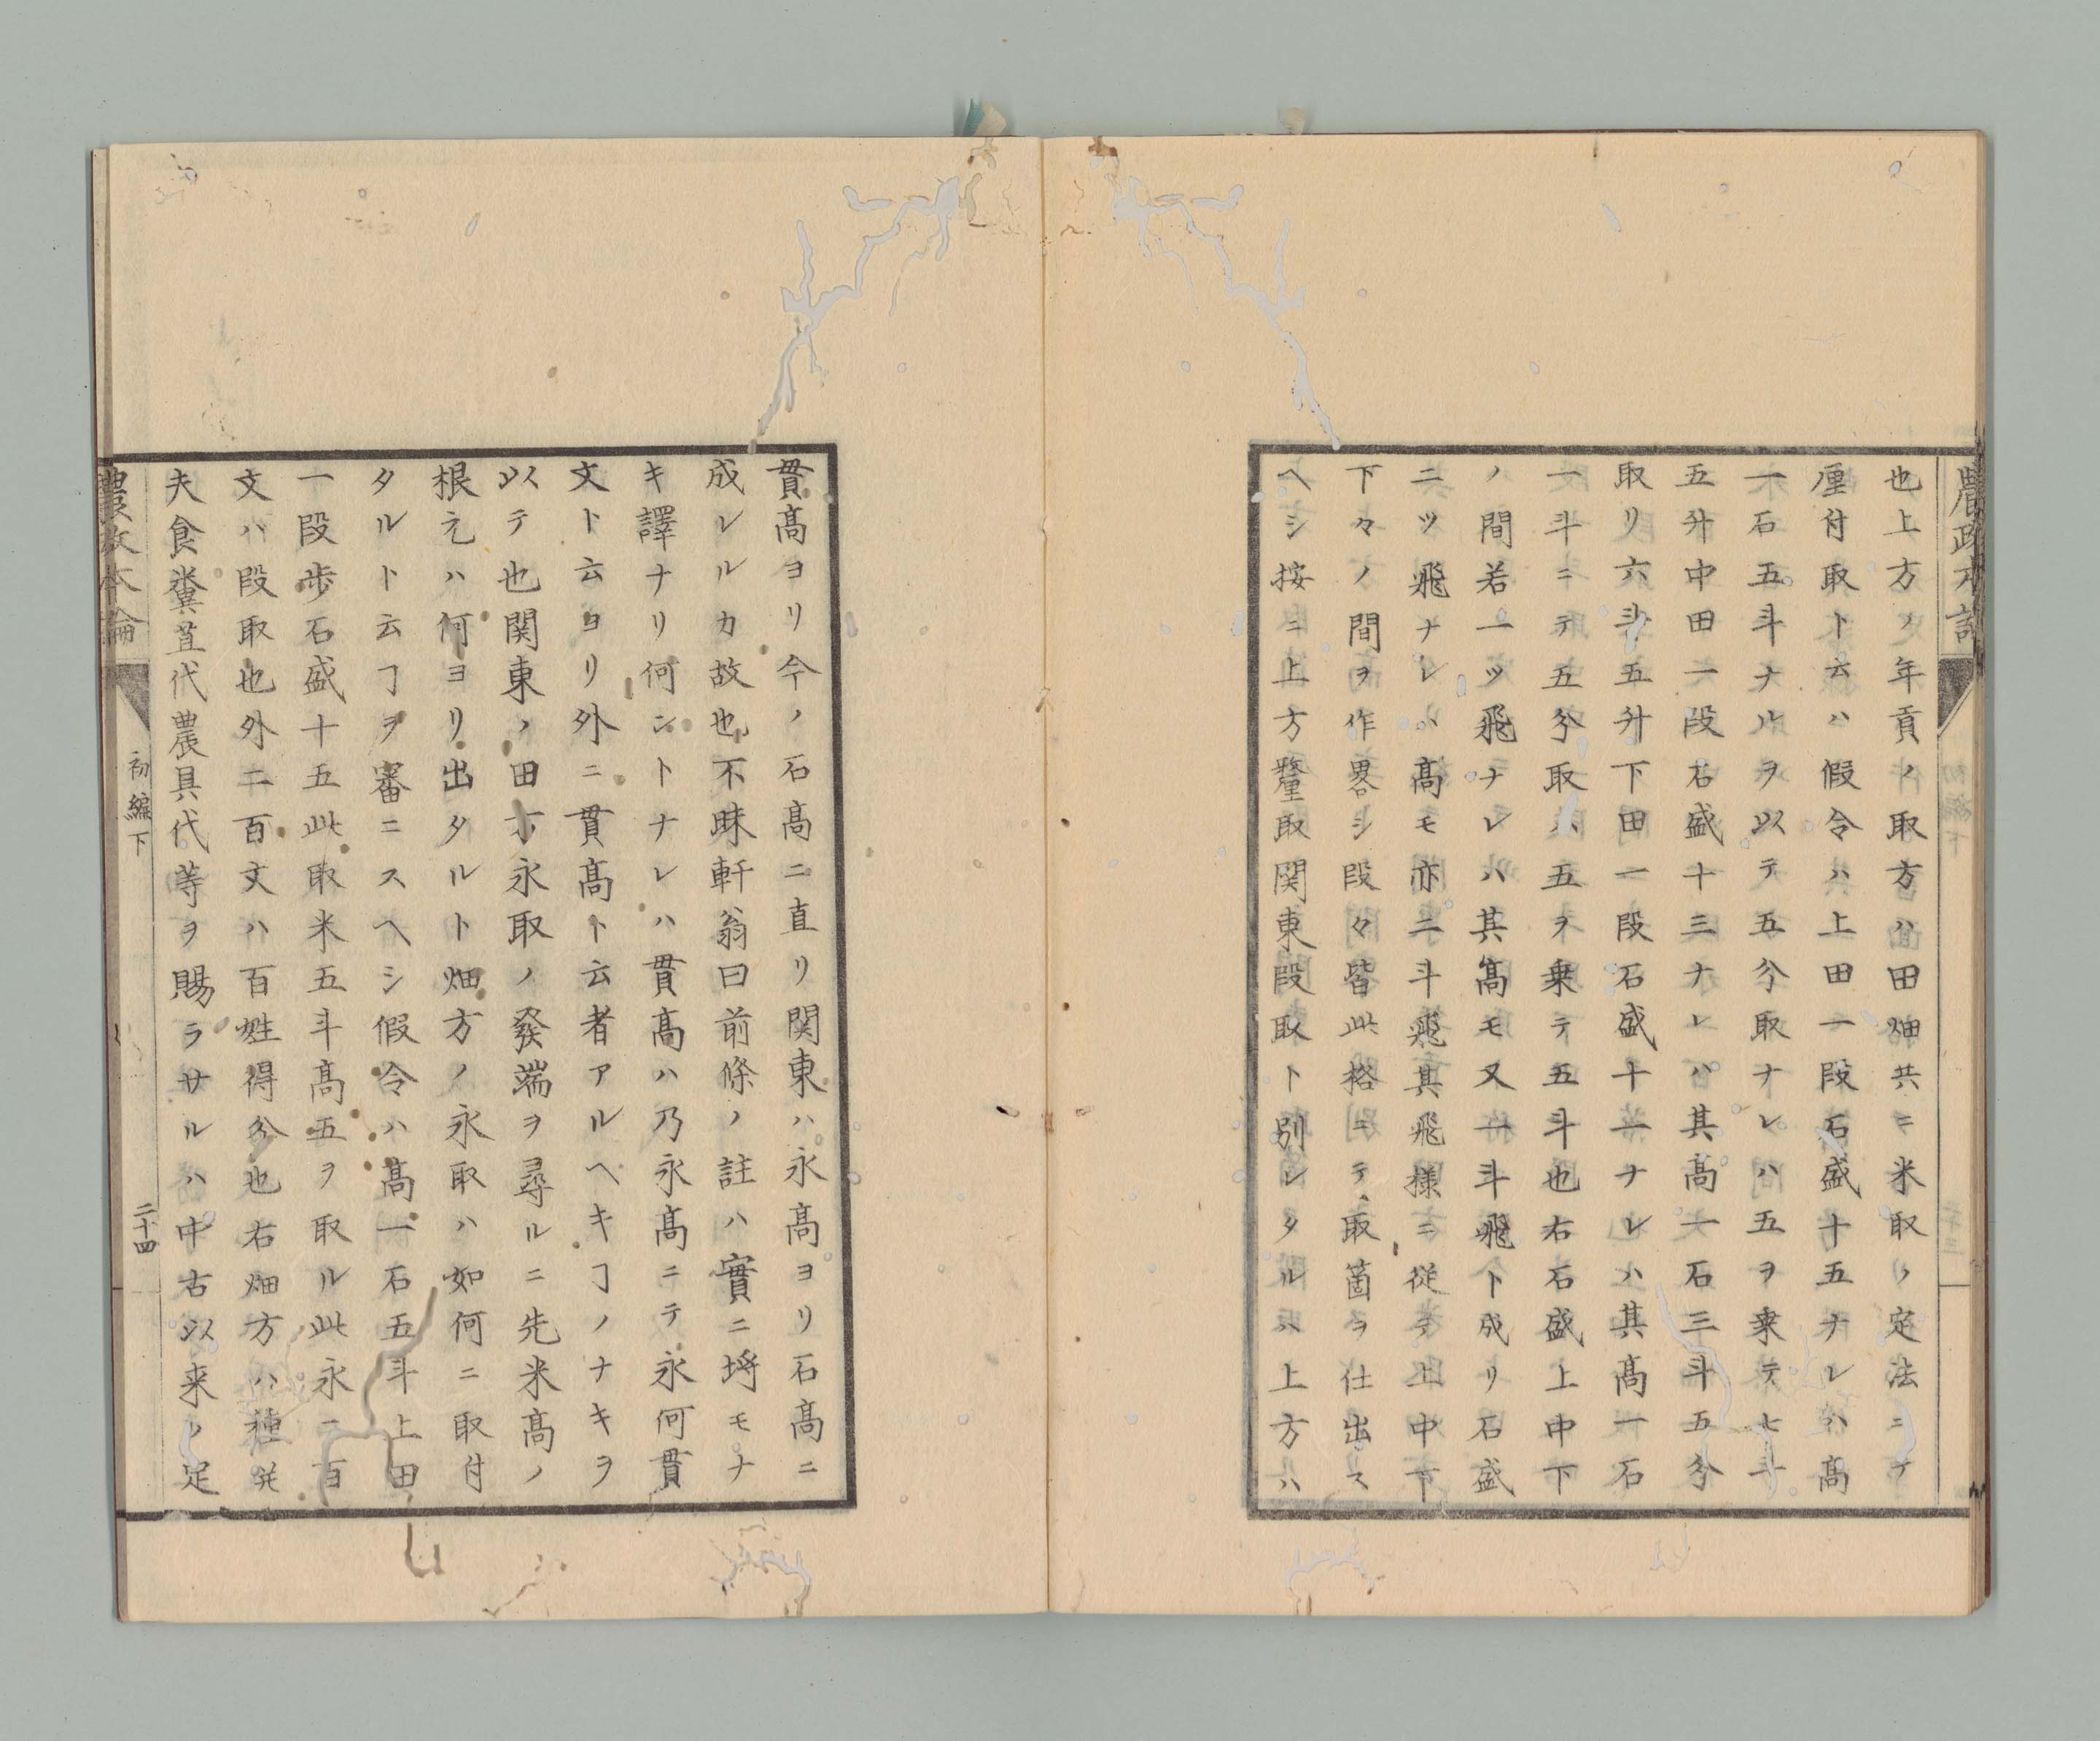 也上方ノ年貢ノ取方ハ田畑共ニ米取ノ定法ニテ
厘付取ト云ハ假令ハ上田一段石盛十五ナレハ髙
一石五斗ナルヲ以テ五分取ナレハ五ヲ乗テ七斗
五升中田一段石盛十三ナレハ其髙一石三斗五分
取リ六斗五升下田一段石盛十一ナレハ其髙一石
一斗ニテ五分取ハ五ヲ乗テ五斗也右石盛上中下
ノ間若一ツ飛ナレハ其髙モ又一斗飛ト成リ石盛
二ツ飛ナレハ髙モ亦二斗飛其飛様ニ従テ上中下
下々ノ間ヲ作畧シ段々皆此格ニテ取箇ヲ仕出ス
ヘシ按ニ上方釐取関東段取ト別レタルハ上方ハ
貫髙ヨリ今ノ石髙ニ直リ関東ハ永髙ヨリ石髙ニ
成レルカ故也不昧軒翁曰前條ノ註ハ實ニ埓モナ
キ譯ナリ何ントナレハ貫髙ハ乃永髙ニテ永何貫
文ト云ヨリ外ニ貫髙ト云者アルヘキヿノナキヲ
以テ也関東ノ田方永取ノ發端ヲ尋ルニ先米髙ノ
根元ハ何ヨリ出タルト畑方ノ永取ハ如何ニ取付
タルト云ヿヲ審ニスヘシ假令ハ髙一石五斗上田
一段歩石盛十五此取米五斗髙五ヲ取ル此永二百
文ハ段取也外二百文ハ百姓得分也右畑方ハ種籾
夫食糞苴代農具代等ヲ賜ラサルハ中古以来ノ定
農政本論
初編下
二十四